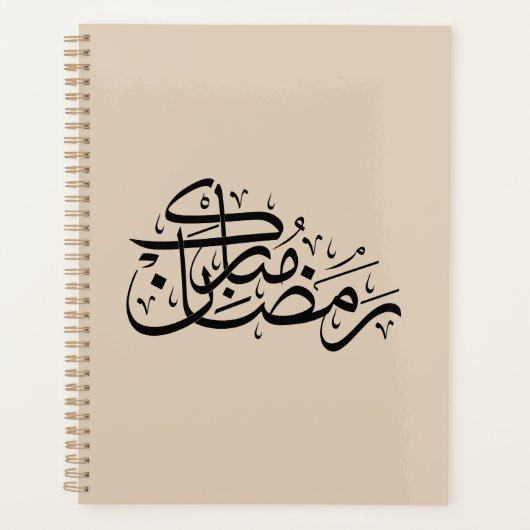 رَمُضَان مُبارك